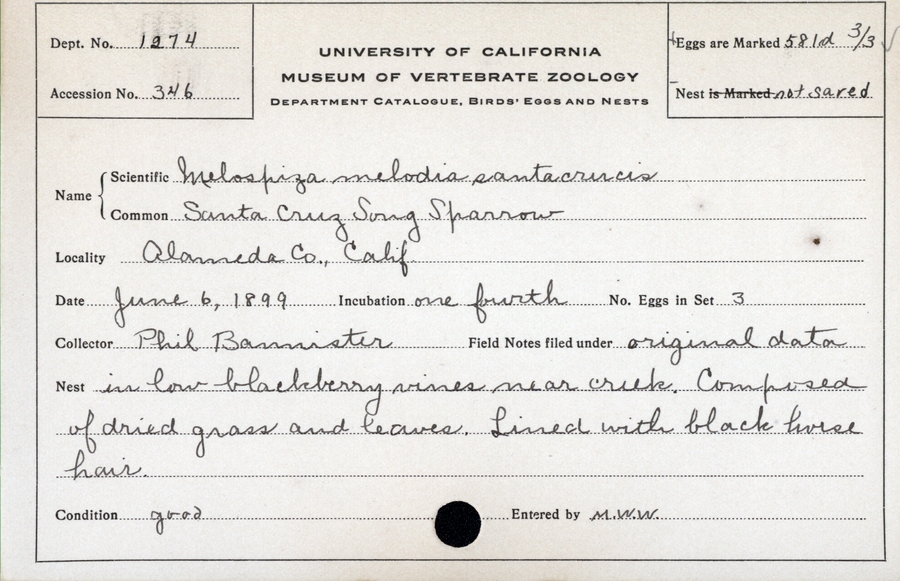 Dept. No. 1274
Accession No. 346
UNIVERSITY OF CALIFORNIA
MUSEUM OF VERTEBRATE ZOOLOGY
DEPARTMENT CATALOGUE, BIRDS' EGGS AND NESTS
Eggs are Marked 581d 3/3
Nest is Marked not saved
Name
Scientific Melospiza melodia santacrucis
Common Santa Cruz Song Sparrow
Locality Alameda Co., Calif.
Date June 6, 1899 Incubation one fourth No. Eggs in Set 3
Collector Phil Bannister Field Notes filed under original data
Nest in low blackberry vines near creek. Composed
of dried grass and leaves. Lined with black horse
hair.
Condition good Entered by M.W.W.